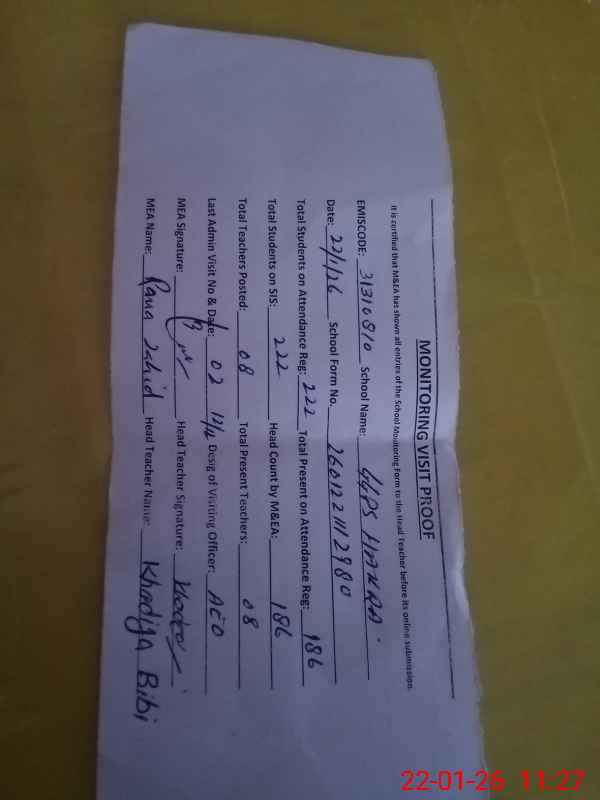 MONITORING VISIT PROOF
It is certified that M&EA has shown all entries of the School Monitoring Form to the Head Teacher before its online submission.
EMISCODE: 31310810 School Name: GGPS HMKRA.
Date: 22/1/26 School Form No. 2601221112980
Total Students on Attendance Reg: 222 Total Present on Attendance Reg: 186
Total Students on SIS: 222 Head Count by M&EA: 186
Total Teachers Posted: 08 Total Present Teachers: 08
Last Admin Visit No & Date: 02 Desig of Visiting Officer: AEO
MEA Signature: Head Teacher Signature:
MEA Name: Rana Zahid Head Teacher Name: Khadija Bibi
22-01-26 11:27